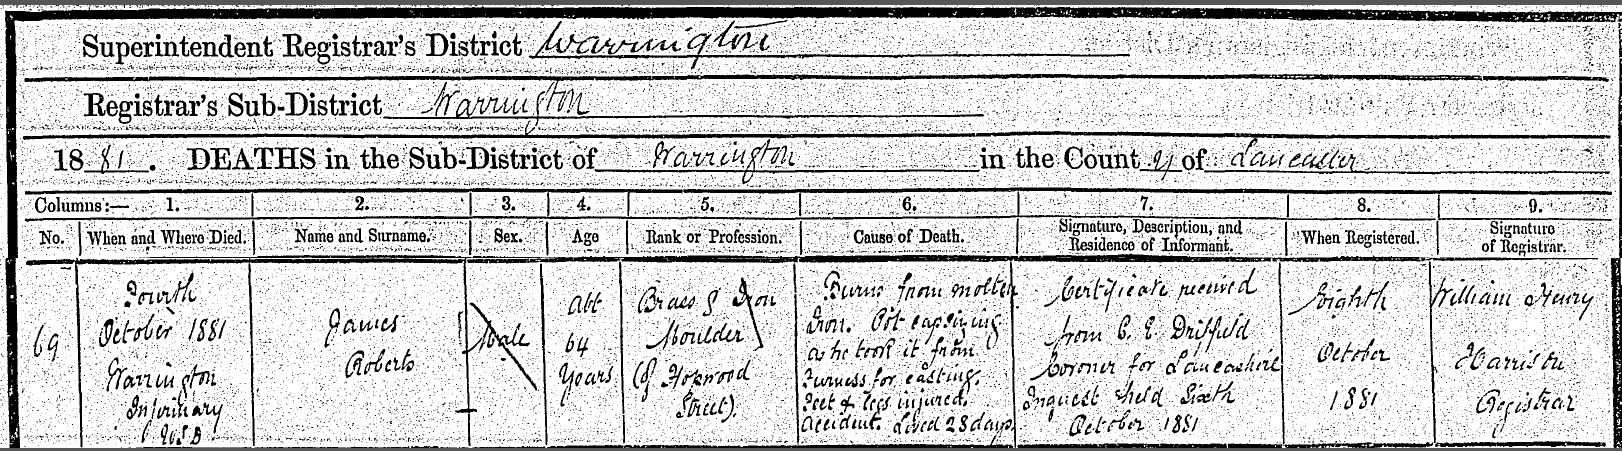 Superintendent Registrar's District Warrington
Registrar's Sub-District Warrington
1881. DEATHS in the Sub-District of Warrington in the County of Lancaster
Columns:— 1. 2. 3. 4. 5. 6. 7. 8. 9.
No. When and Where Died. Name and Surname. Sex. Age Rank or Profession. Cause of Death. Signature, Description, and Residence of Informant. When Registered. Signature of Registrar.
69
Fourth
October 1881
Warrington
Infirmary
USD
James
Roberts
Male
Abt
64
Years
Brass & Iron
Moulder
(of Hopwood
Street).
Burns from molten
Iron. Pot capsizing
as he took it from
Furness for casting.
Feet & legs injured.
Accident. Lived 28 days.
Certificate received
from C. E. Driffield
Coroner for Lancashire
Inquest held Sixth
October 1881
Eighth
October
1881
William Henry
Harrison
Registrar